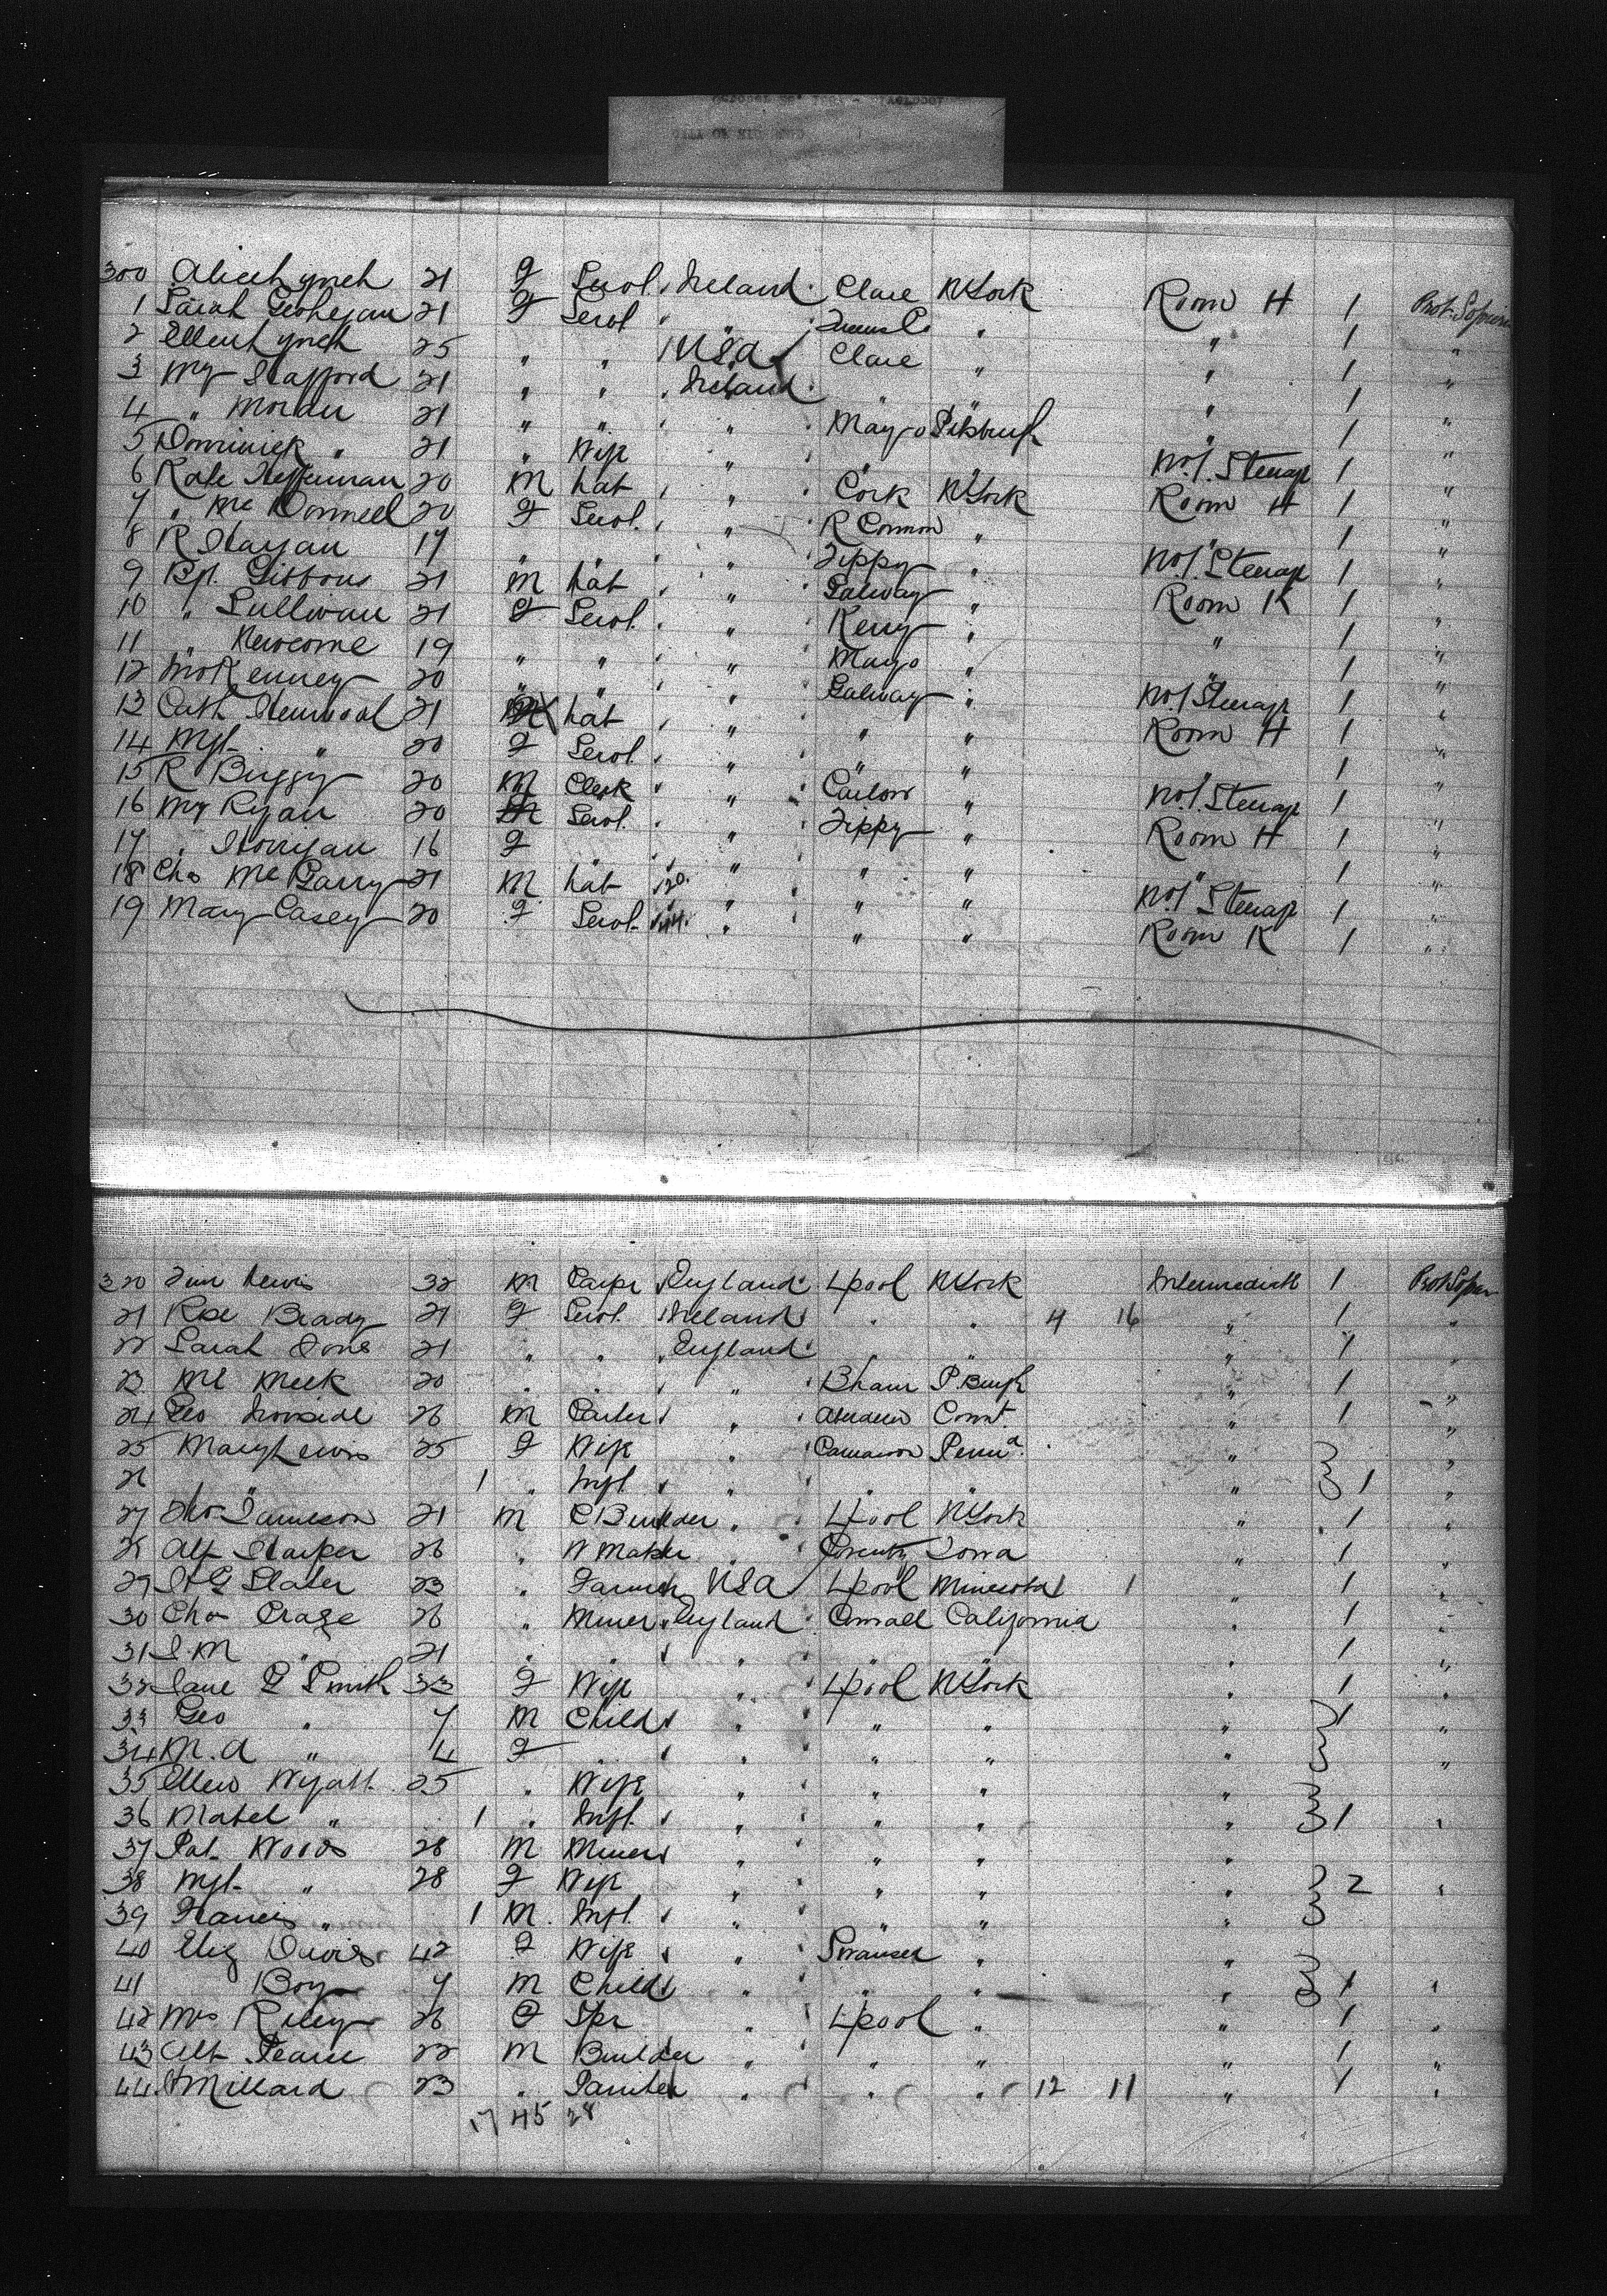 300 Alice Lynch 21 F Servt Ireland Clare N York Room H 1 Prot. Sojourn
1 Sarah Geohegan 21 F Servt " " Queens Co " " 1 "
2 Ellen Lynch 25 " " USA Clare " " 1 "
3 Mgt Stafford 21 " " Ireland " " " 1 "
4 " Moran 21 " " " Mayo Pitsburgh " 1 "
5 Dominick " 21 " Wife " " " No. 1 Steerage 1 "
6 Kate Heffernan 20 M Lab " Cork N York Room H 1 "
7 " Mc Donnell 20 F Servt " R Common " " 1 "
8 R Hayan 19 " " " Tippy " No. 1 Steerage 1 "
9 Bgt. Gibbons 21 M Lab " Galway " Room K 1 "
10 " Sullivan 21 F Servt. " Kerry " " 1 "
11 " Newcome 19 " " " Mayo " " 1 "
12 Kenney 20 " " " Galway " No. 1 Steerage 1 "
13 Cath 21 Lab " " " Room H 1 "
14 Mgt " 20 F Servt. " " " " 1 "
15 R Buggy 20 M Clerk " Carlow " No. 1 Steerage 1 "
16 My Ryan 20 Servt. " Tippy " Room H 1 "
17 " Horrigan 16 F " " " " " 1 "
18 Chs Mc Garry 21 M Lab " " " No. 1 Steerage 1 "
19 Mary Casey 20 F Servt " " " Room K 1 "
320 Lewis 32 M Carpr England Lpool N York Intermediate 1 Prot Sojourn
21 Rose Brady 21 F Servt. Ireland " " 4 16 " 1 "
22 Sarah Jone 21 " " England " " " 1 "
23 Meek 20 " " " Bham P. Burgh " 1 "
24 Geo Ironside 26 M Carter " Aberdeen " 1 "
25 Mary Lewis 25 F Wife " Carnarvon Penna "
26 " 1 " Inft. " " " " 1 "
27 Tho Jameson 21 M C Builder " Lpool N York " 1 "
28 Alf Harper 26 " W Maker " Coventry Iowa " 1 "
29 Slater 23 " Farmer USA Lpool Minesota 1 " 1 "
30 Chs Praze 26 " Miner England California " 1 "
31 J. M " 21 " " " " " " 1 "
32 Jane E Smith 33 F Wife " Lpool N York " 1 "
33 Geo " 7 M Child " " " " 1 "
34 M. A " 4 F " " " " " "
35 Ellen Wyatt 25 " Wife " " " "
36 Mabel " 1 " Inft. " " " " 1 "
37 Pat Woods 28 M Miner " " " "
38 Mgt " 28 F Wife " " " " 2 "
39 Francis " 1 M. Inft. " " " "
40 Eliz Davis 42 F Wife " Swansea " "
41 Boy 7 M Child " " " " 1 "
42 Mrs Riley 26 F Spr " Lpool " " 1 "
43 Alb Pearce 22 M Builder " " " " 1 "
44 Millard 23 " Painter " " " 12 11 " 1 "
17 45 28